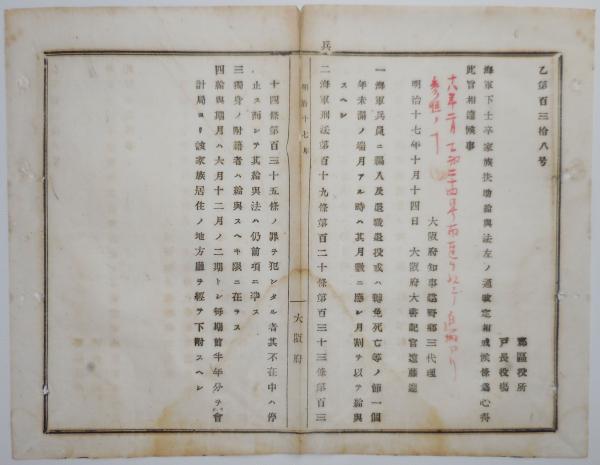 乙第百三拾八号
郡區役所
戸長役場
海軍下士卒家族扶助給與法左ノ通改定相成候條為心得
此旨相達候事
明治十七年十月十四日
大阪府知事建野郷三代理
大阪府大書記官遠藤達
一海軍兵員ニ編入及退職退役或ハ轉免死亡等ノ節一個
年未滿ノ端月アル時ハ其月數ニ應シ月割ヲ以テ給與
スヘシ
二海軍刑法第百十九條第百二十條第百三十三條第百三
兵
明治十七年
大阪府
十四條第百三十五條ノ罪ヲ犯シタル者其不在中ハ停
止ス而シテ其給與法ハ仍前項ニ準ス
三獨身ノ附籍者ハ給與スヘキ限ニ在ラス
四給與期月ハ六月十二月ノ二期トシ毎期前半年分ヲ會
計局ヨリ該家族居住ノ地方廳ヲ經テ下附スヘシ